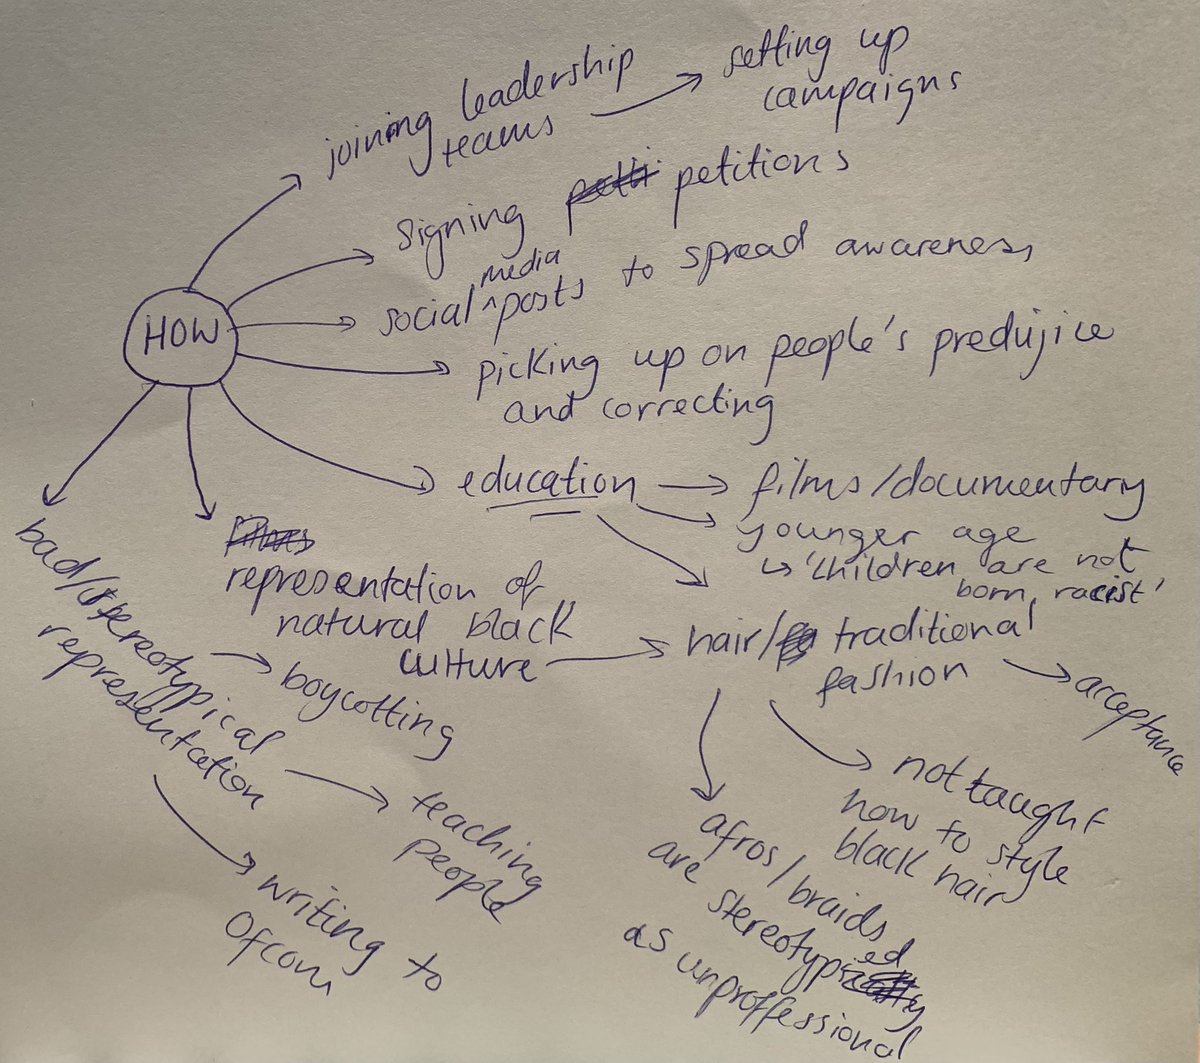 HOW
joining leadership
teams
setting up
campaigns
signing petitions
social media posts to spread awareness
picking up on people's predujice
and correcting
education
films/documentary
younger age
↳ 'children are not
born racist'
representation of
natural black
culture
hair/ traditional
fashion
acceptance
not taught
how to style
black hair
afros/braids
are stereotyped
as unproffessional
bad/stereotypical
representation
boycotting
teaching
people
writing to
Ofcom